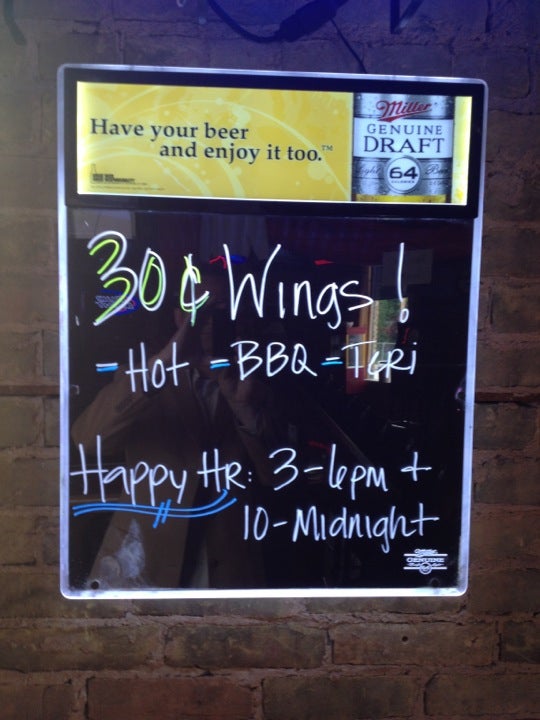 Have your beer
and enjoy it too.™
Miller
GENUINE
DRAFT
Light
64
CALORIES
Beer
30¢ Wings!
- Hot = BBQ = Teri
Happy HR: 3-6pm +
10-Midnight
Miller
GENUINE